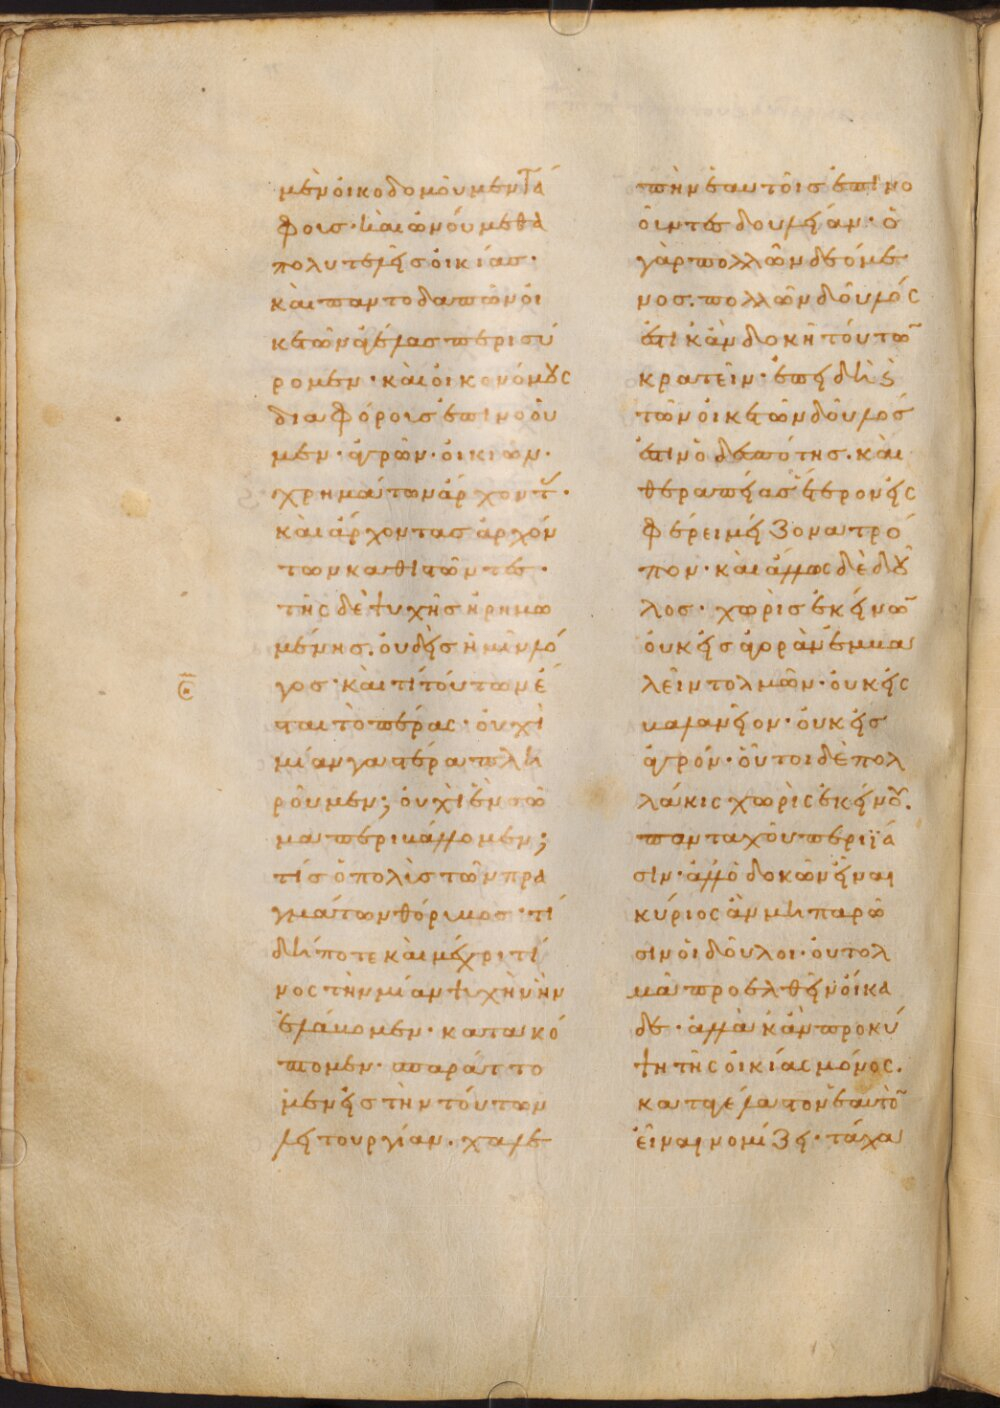 μὲν οἰκοδομοῦμεν τά
φοις· καὶ ὠνούμεθα
πολυτελεῖς οἰκίας·
καὶ παντοδαπῶν οἰ
κετῶν ἀγέλας περισύ
ρομεν· καὶ οἰκονόμους
διαφόροις ἐπινοοῦ
μεν· ἀγρῶν· οἰκιῶν·
χρημάτων ἄρχοντας·
καὶ ἄρχοντας ἀρχόν
των καθιστῶντες·
τῆς δὲ ψυχῆς ἠρημω
μένης· οὐδεὶς ἡμῖν λό
γος· καὶ τί τούτων ἔ
σται τὸ πέρας· οὐχὶ
μίαν γαστέρα πλη
ροῦμεν; οὐχὶ ἓν σῶ
μα περιβάλλομεν;
τίς ὁ πολὺς τῶν πρα
γμάτων θόρυβος· τί
δήποτε καὶ μέχρι τί
νος τὴν μίαν ψυχὴν ἣν
ἐλάβομεν· κατακό
πτομεν· σπαράττο
μεν εἰς τὴν τούτων
λειτουργίαν· χαλε
πὴν ἑαυτοῖς ἐπινο
οῦντες δουλείαν· ὁ
γὰρ πολλῶν δεόμε
νος· πολλῶν δοῦλός
ἐστι κἂν δοκῇ τούτων
κρατεῖν· ἐπειδὴ καὶ
τῶν οἰκετῶν δοῦλός
ἐστιν ὁ δεσπότης· καὶ
θεραπείας ἕτερον εἰς
φέρει μείζονα τρό
πον· καὶ ἄλλως δὲ δοῦ
λος· χωρὶς ἐκείνων
οὐκ εἰς ἀγορὰν ἐμβα
λεῖν τολμῶν· οὐκ εἰς
βαλανεῖον· οὐκ εἰς
ἀγρόν· οὗτοι δὲ πολ
λάκις χωρὶς ἐκείνου·
πανταχοῦ περιϊᾶ
σιν· ἀλλ' ὁ δοκῶν εἶναι
κύριος ἂν μὴ παρῶ
σιν οἱ δοῦλοι· οὐ τολ
μᾶ προελθεῖν οἴκα
δε· ἀλλὰ κἂν προκύ
ψη τῆς οἰκίας μόνος·
καταγέλαστον ἑαυτὸν
εἶναι νομίζει· τάχα